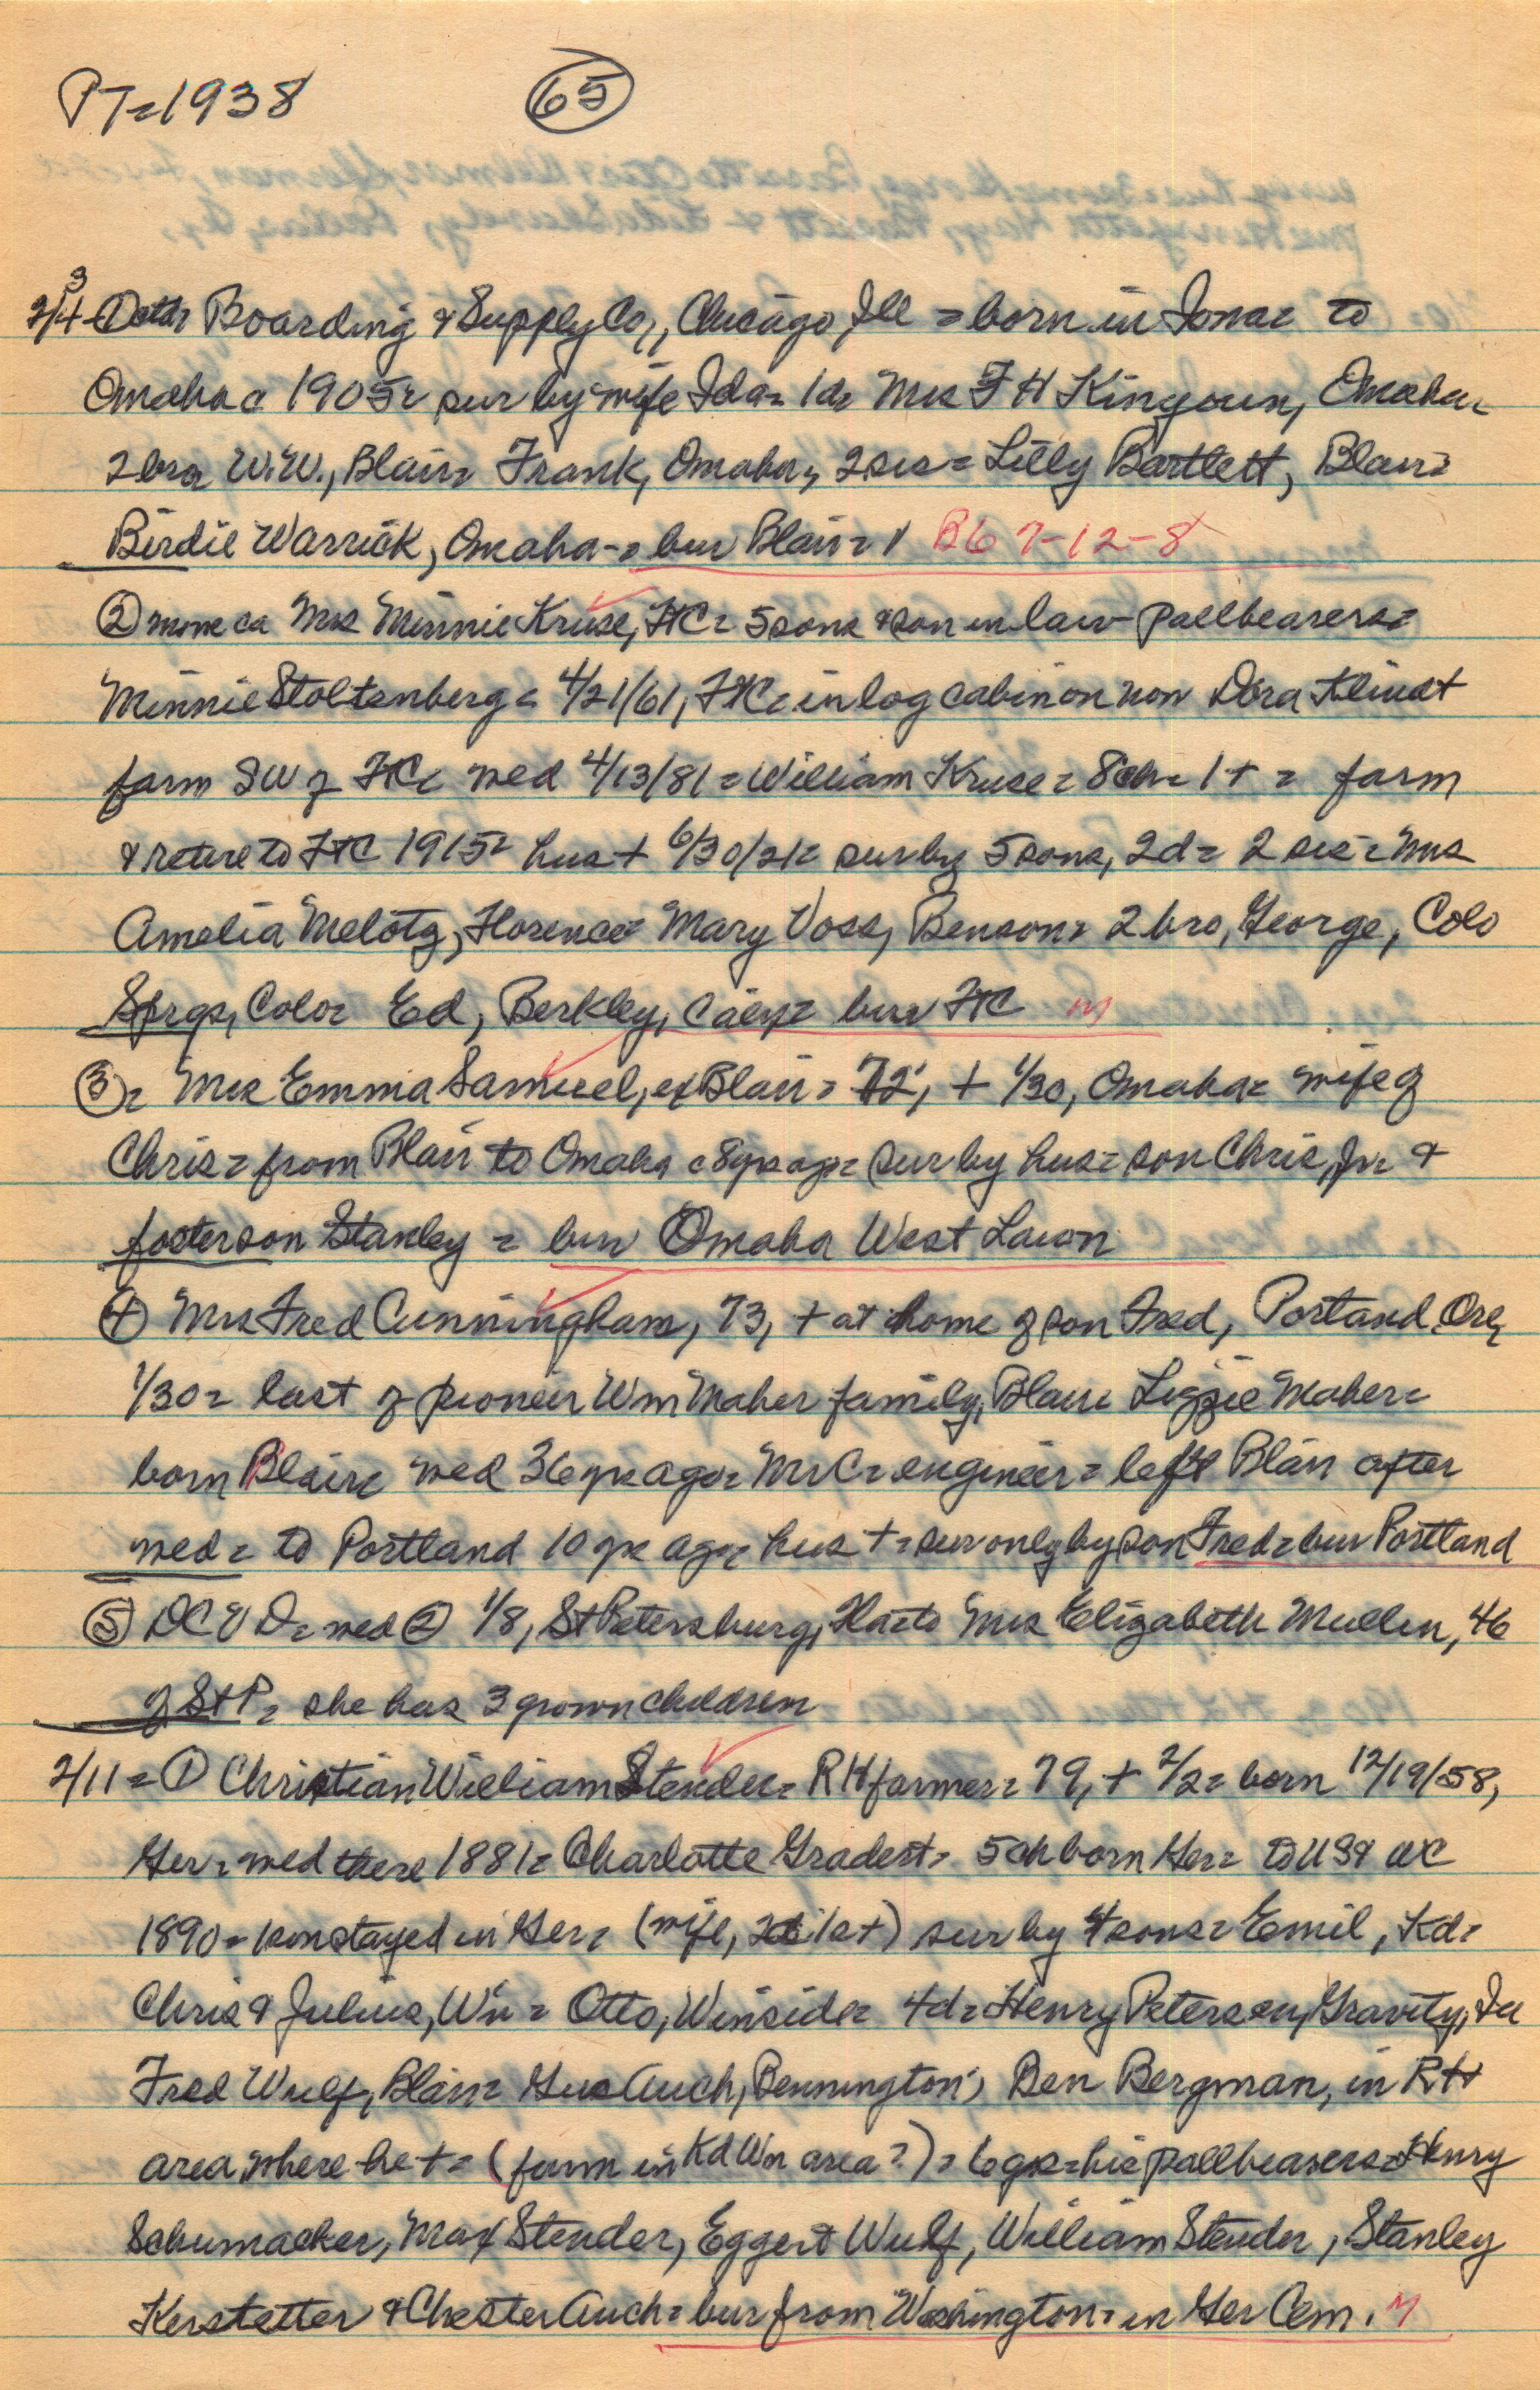 PT=1938 65
3
2/4 Boarding & Supply Co,, Chicago, Ill = born in Iowa= to
Omaha c 1905= sur by wife Ida= 1d= Mrs F H Kingoun, Omaha=
2 bro W.W., Blair= Frank, Omaha, 2 sis= Lilly Bartlett, Blair=
Birdie Warrick, Omaha-= bur Blair= 1 B6 7-12-8
② more ca Mrs Minnie Kruse, FtC= 5 sons & son in law pallbearers=
Minnie Stoltenberg= 4/21/61, FtC= in log cabin on now Dora Klindt
farm SW of FtC= wed 4/13/81= William Kruse= 8ch= 1+ = farm
& retire to FtC 1915= hus + 6/30/21= sur by 5 sons, 2d= 2 sis= Mrs
Amelia Melotz, Florence= Mary Voss, Benson= 2 bro, George, Colo
Sprgs, Colo= Ed, Berkley, Calif= bur FtC M
③= Mrs Emma Samuel, ex Blair= 72, + 1/30, Omaha= wife of
Chris= from Blair to Omaha c 8 yrs ago= sur by hus= son Chris, Jr= &
foster son Stanley = bur Omaha West Lawn
④ Mrs Fred Cunningham, 73, + at home of son Fred, Portand, Ore,
1/30= last of pioneer Wm Maher family, Blair= Lizzie Maher=
born Blair= wed 36 yrs ago= Mr C= engineer= left Blair after
wed= to Portland 10 yrs ago= hus += sur only by son Fred= bur Portland
⑤ DC V D= wed ② 1/8, St Petersburg, Fla= to Mrs Elizabeth Mullin, 46
of St P= she has 3 grown children
2/11= ① Christian William Stender= RH farmer= 79, + 2/2= born 12/19/58,
Ger= wed there 1881= Charlotte Gradert= 5ch born Ger= to US & WC
1890= 1 son stayed in Ger= (wife, 2d 1s+) sur by 4 sons= Emil, Kd=
Chris & Julius, Wn= Otto, Winside= 4d= Henry Petersen, Gravity, Ia
Fred Wulf, Blair= Gus Auch, Bennington, Ben Bergman, in RH
area, where he += (farm in Kd Wn area?)= 6 gs= his pallbearers= Henry
Schumacker, Max Stender, Eggert Wulf, William Stender, Stanley
Kerstetter & Chester Auch= bur from Washington= in Ger Cem. M